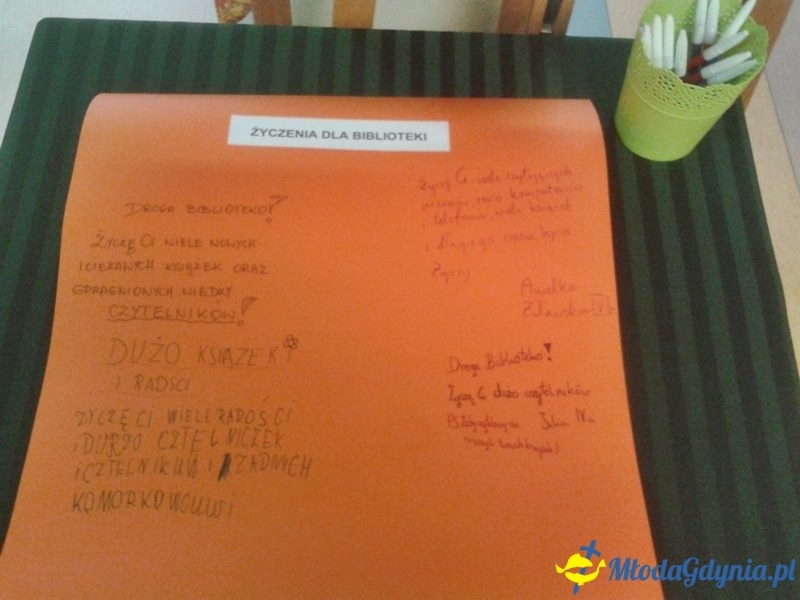 ŻYCZENIA DLA BIBLIOTEKI
DROGA BIBLIOTEKO!
ŻYCZĘ CI WIELE NOWYCH
I CIEKAWYCH KSIĄŻEK ORAZ
SPRAGNIONYCH WIEDZY
CZYTELNIKÓW!
DUŻO KSIĄŻEK
I RADŚCI
ŻYCZĘ CI WIELE RADOŚCI
I DURZO CZTĘLNICZEK
I CZTELNIKUW I ŻADNYCH
KOMORKOWCUWI
Życzę Ci wiele czytających
uczniów, zero komputerów
i telefonów, wielu książek
i długiego czasu bycia
Życzy
Amelka
IV b
Droga Biblioteko!
Życzę Ci dużo czytelników
Julia IV a
MłodaGdynia.pl